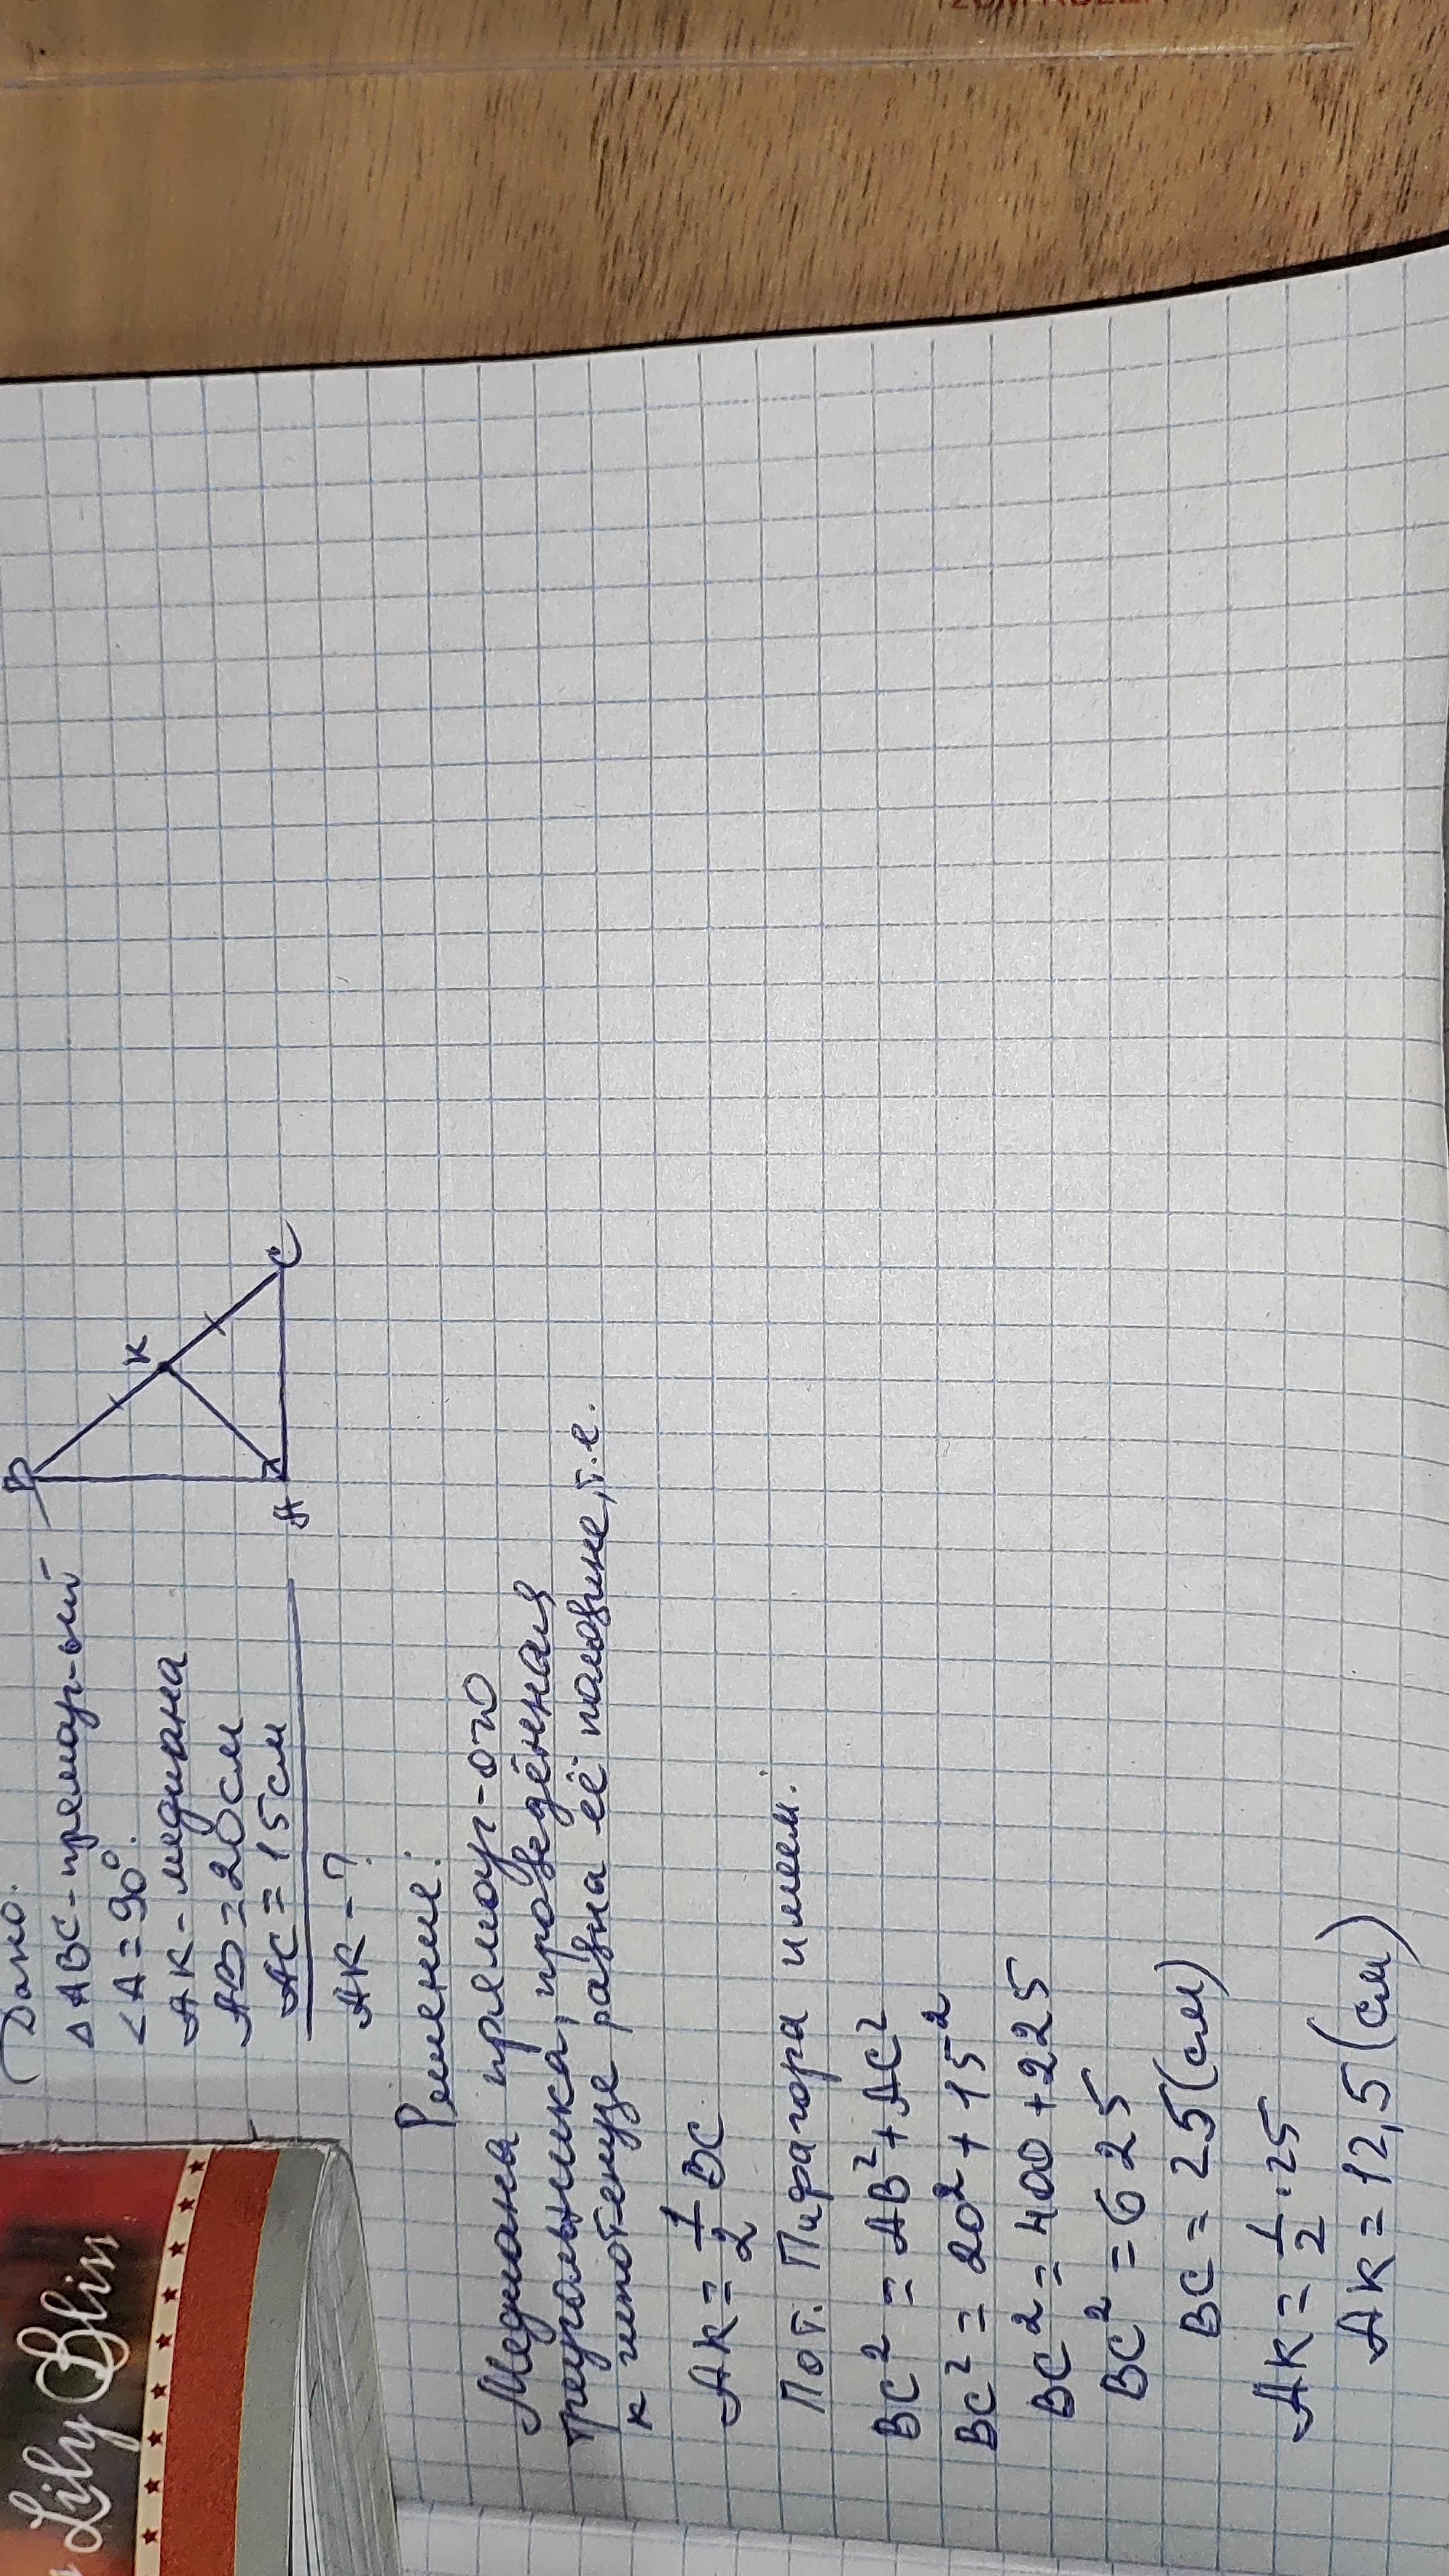 Дано:
△ ABC - прямоуг-ый
∠A = 90°.
AK - медиана
AB = 20 см
AC = 15 см
AK - ?
B
K
A
C
Решение:
Медиана прямоуг-ого
треугольника, проведённая
к гипотенузе равна её половине, т.е.
AK = 1/2 BC
По т. Пифагора имеем:
BC² = AB² + AC²
BC² = 20² + 15²
BC² = 400 + 225
BC² = 625
BC = 25 (см)
AK = 1/2 · 25
AK = 12,5 (см)
Lily Blin